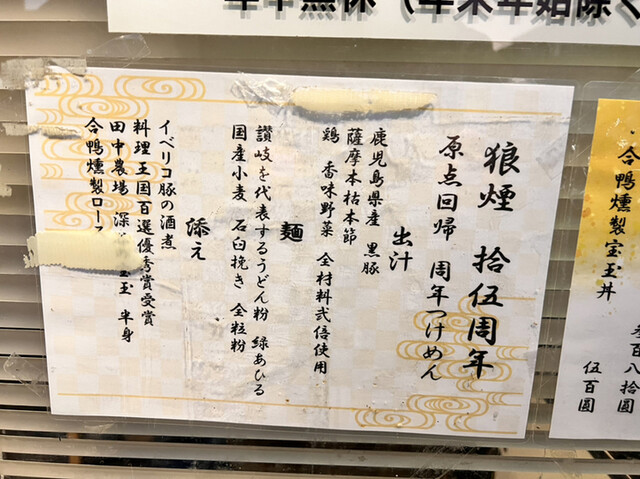 狼煙 拾伍周年
原点回帰 周年つけめん
出汁
鹿児島県産 黒豚
薩摩本枯本節
鶏 香味野菜 全材料弐倍使用
麺
讃岐を代表するうどん粉 緑あひる
国産小麦 石臼挽き 全粒粉
添え
イベリコ豚の酒煮
料理王国百選優秀賞受賞
田中農場 深 宝玉 半身
合鴨燻製ロース
合鴨燻製宝玉丼
八拾圓
伍百圓